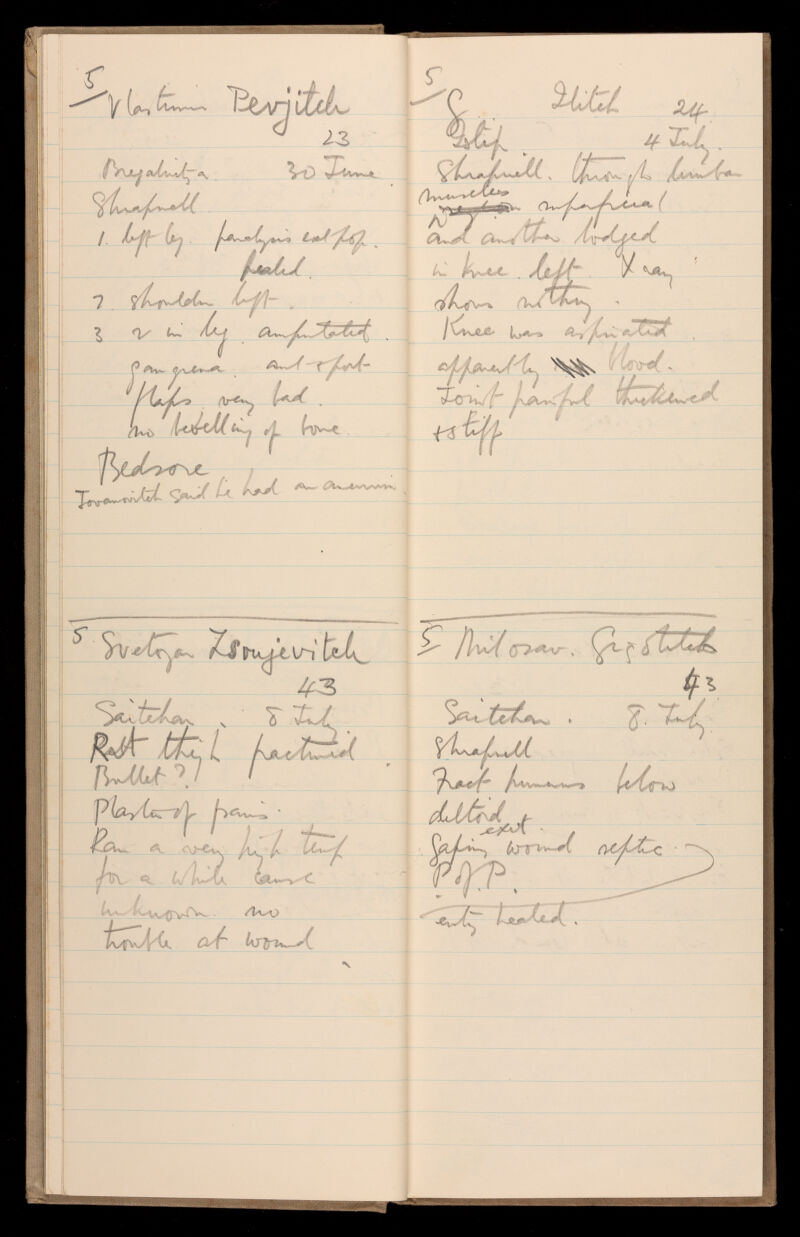 5
Vlastimir Pevjitch
23
Bregalnitza. 30 June
Shrapnell
1. left leg. paralysis ext pop.
healed.
2. shoulder left.
3 2 in leg. amputated.
gangrena. ant + post
flaps very bad.
no bevelling of bone.
Bedsore
Jovanovitch said he had an aneurism.
5 Svetozar Zsoujevitch
43
Saitchar. 8 July
Rt thigh fractured
Bullet?
Plaster of paris.
Ran a very high temp
for a while cause
unknown. no
trouble at wound
5
G. Ilitch 24
Istip. 4 July.
Shrapnell. through lumbar
muscles
superficial
and another lodged
in knee left. X ray
shows nothing.
Knee was aspirated.
apparently blood.
Joint painful thickened
+ stiff
5 Milosav.
43
Saitchar. 8. July
Shrapnell
Fract. humerus below
deltoid
exit.
Gaping wound septic.
P of P.
entry healed.